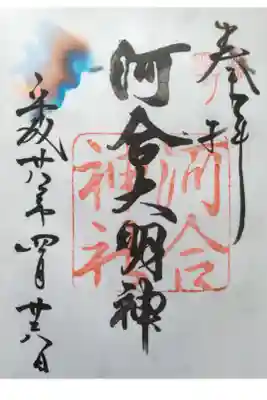 奉拝
河合大明神
平成廿八年四月廿六日
河合
神社